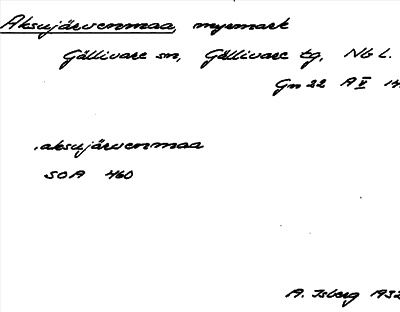 Aksujärvenmaa, myrmark
Gällivare sn, Gällivare tg, Nb L.
Gn 22 A V 14
.aksujärvenmaa
SOA 460
A. Isberg 1932